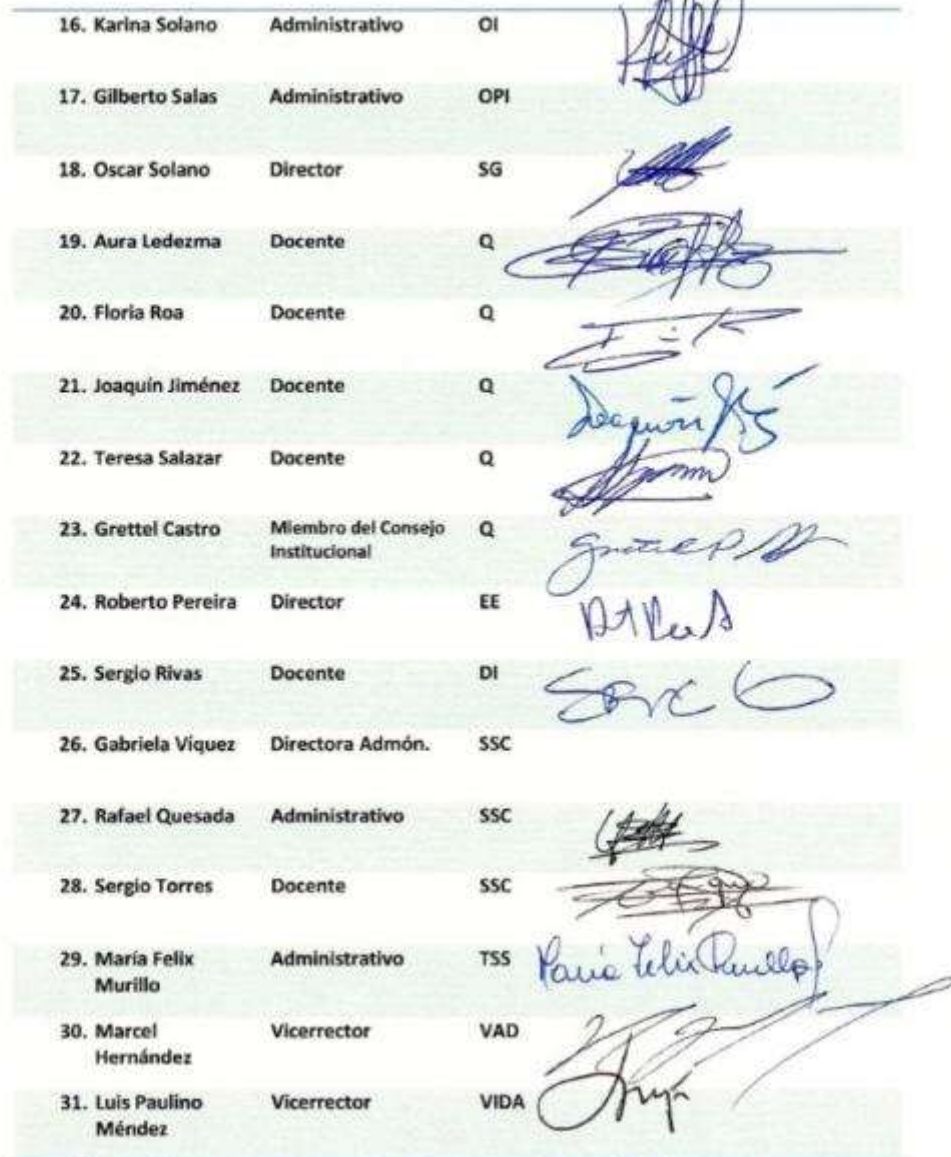 16. Karina Solano Administrativo OI
17. Gilberto Salas Administrativo OPI
18. Oscar Solano Director SG
19. Aura Ledezma Docente Q
20. Floria Roa Docente Q
21. Joaquín Jiménez Docente Q
Joaquín
22. Teresa Salazar Docente Q
23. Grettel Castro Miembro del Consejo Q
Institucional
24. Roberto Pereira Director EE
25. Sergio Rivas Docente DI
26. Gabriela Víquez Directora Admón. SSC
27. Rafael Quesada Administrativo SSC
28. Sergio Torres Docente SSC
29. María Felix Administrativo TSS María Felix Murillo
Murillo
30. Marcel Vicerrector VAD
Hernández
31. Luis Paulino Vicerrector VIDA
Méndez